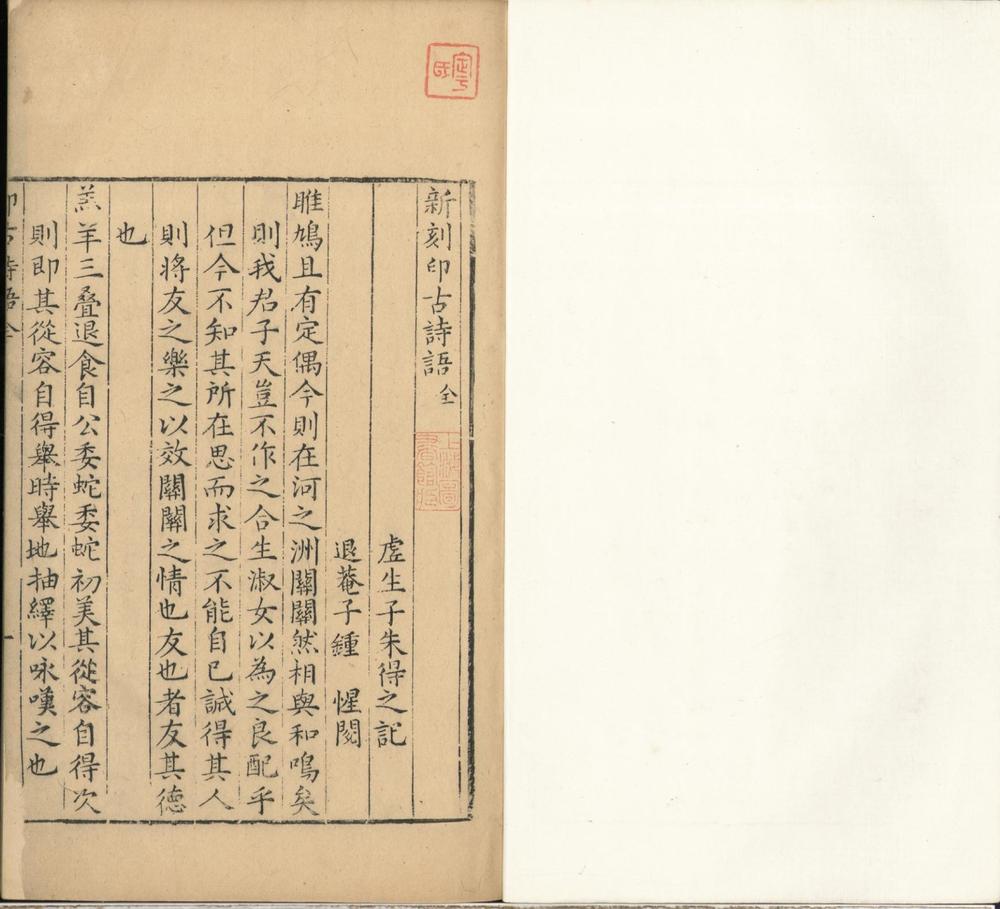 新刻印古詩語 全
虗生子朱得之記
退菴子鍾 惺閱
雎鳩且有定偶今則在河之洲關關然相與和鳴矣
則我君子天豈不作之合生淑女以為之良配乎
但今不知其所在思而求之不能自已誠得其人
則將友之樂之以效關關之情也友也者友其徳
也
羔羊三疊退食自公委蛇委蛇初美其從容自得次
則即其從容自得舉時舉地抽繹以咏嘆之也
印古詩語全 一
上海圖書館藏